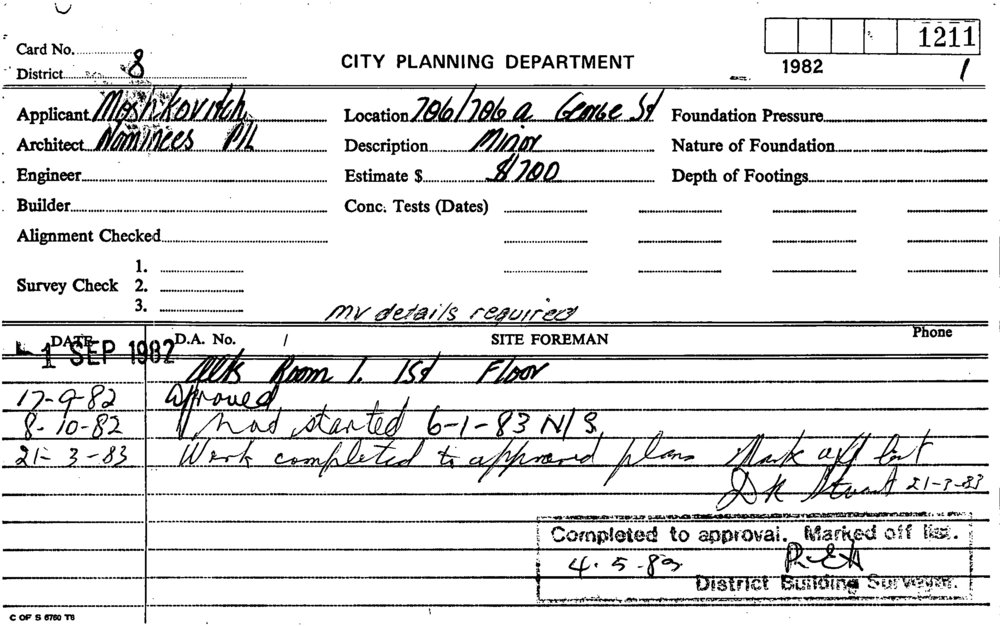 1211
Card No.
District 8
CITY PLANNING DEPARTMENT
1982 1
Applicant Moshkovitch
Location 706/706a George St
Foundation Pressure
Architect Nominees P/L
Description Minor
Nature of Foundation
Engineer
Estimate $ $700
Depth of Footings
Builder
Conc. Tests (Dates)
Alignment Checked
1.
Survey Check 2.
3.
mv details required
DATE D.A. No. / SITE FOREMAN Phone
1 SEP 1982
Alts Room 1. 1st Floor
17-9-82 Approved
8-10-82 Not started 6-1-83 N/S
21-3-83 Work completed to approved plans Mark off list
DK Stuart 21-3-83
Completed to approval. Marked off list.
4.5.83
District Building Surveyor.
C OF S 6760 T6